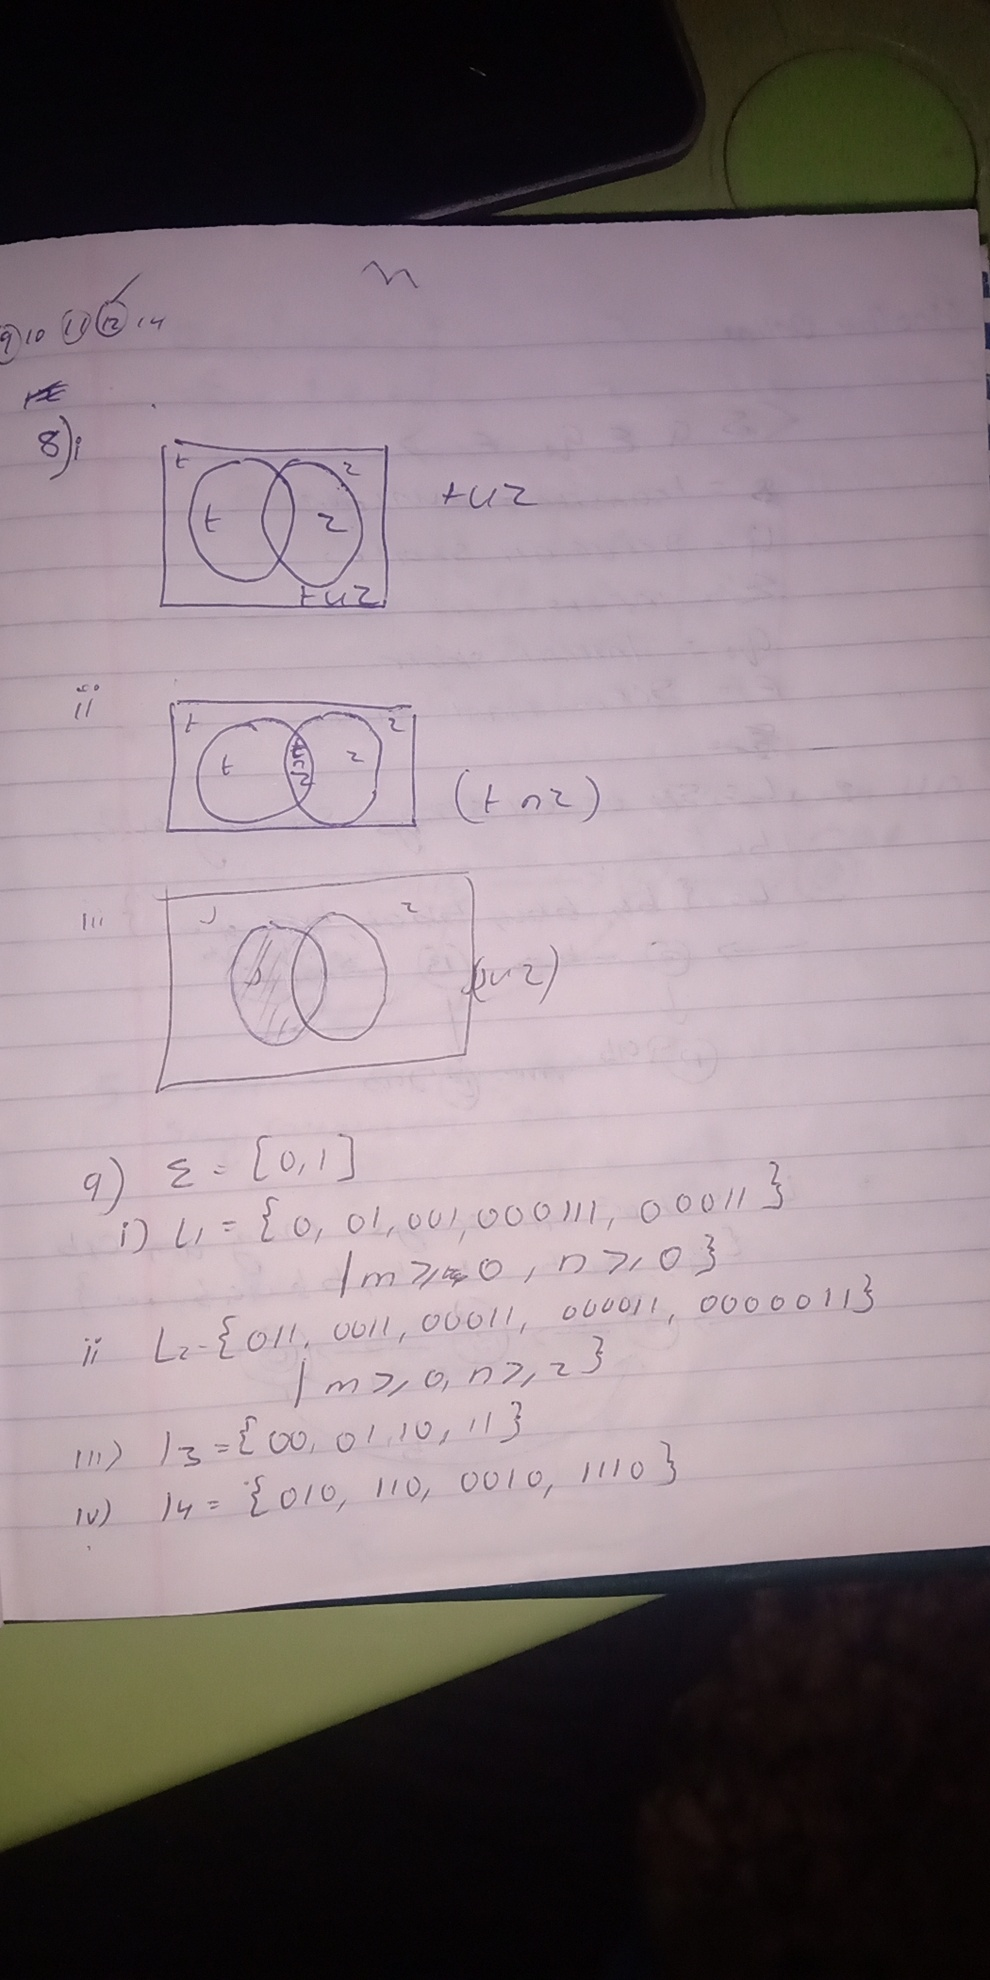 n
9 10 11 12 14
8) i
t 2
t 2 t u 2
t u 2
ii
t 2
t t n 2 2
(t n 2)
iii
2
u 2)
9) Σ = [0, 1]
i) L1 = {0, 01, 001, 000111, 00011}
| m ⩾ 0, n ⩾ 0}
ii L2 - {011, 0011, 00011, 000011, 0000011}
| m ⩾ 0, n ⩾ 2}
iii) l3 = {00, 01 10, 11}
iv) l4 = {010, 110, 0010, 1110}